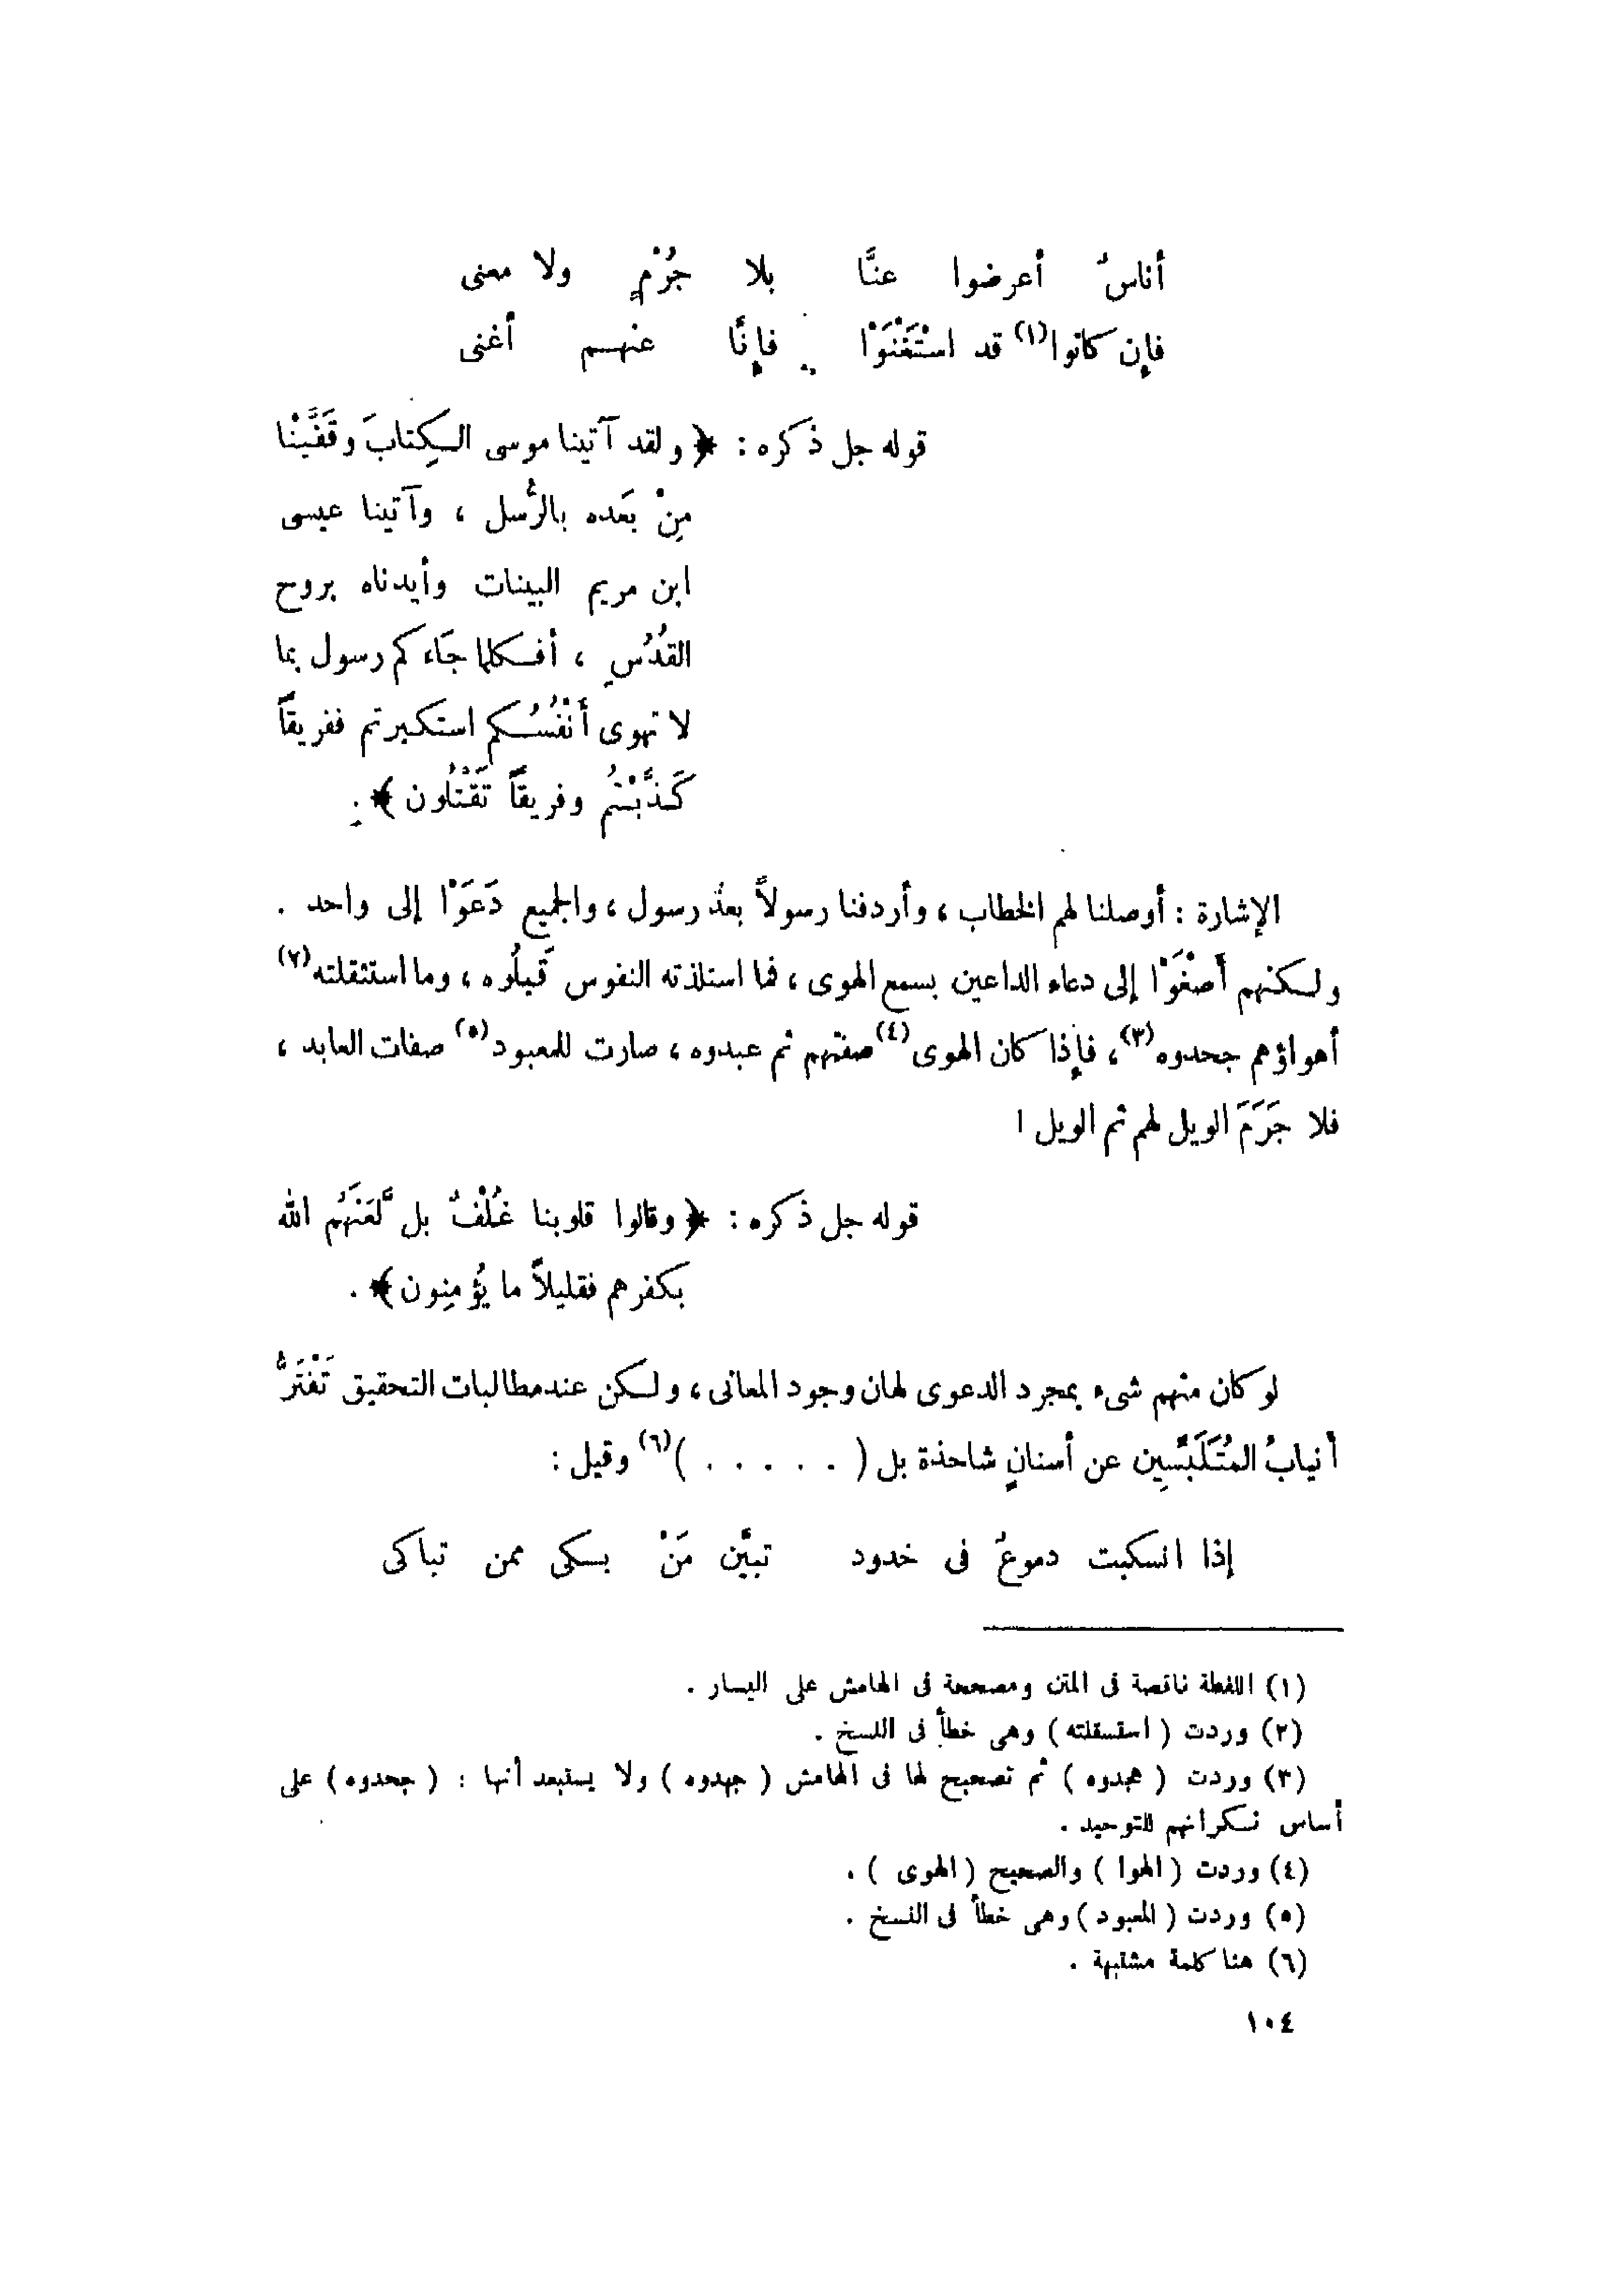 أناسٌ أعرضوا عنَّا بلا جُرْمٍ ولا معنى
فإن كانوا(١) قد استَغْنَوْا فإنَّا عنهـم أغنى
قوله جل ذكره : ﴿ ولقد آتينا موسى الكِتابَ وقَفَّيْنا
مِنْ بَعده بالرُّسل ، وآتينا عيسى
ابن مريم البينات وأيدناه بروح
القُدُسِ ، أفكلما جَاءكم رسول بما
لا تهوى أنْفُسُكم استكبرتم ففريقاً
كَذَّبْتُم وفريقاً تَقْتُلون ﴾ .
الإشارة : أوصلنا لهم الخطاب ، وأردفنا رسولاً بعد رسول ، والجميع دَعَوْا إلى واحد .
ولكنهم أصْغَوْا إلى دعاء الداعين بسمع الهوى ، فما استلذته النفوس قَبِلُوه ، وما استثقلته(٢)
أهواؤهم جحدوه(٣) ، فإذا كان الهوى(٤) صفتهم ثم عبدوه ، صارت للمعبود(٥) صفات العابد ،
فلا جَرَمَ الويل لهم ثم الويل !
قوله جل ذكره : ﴿ وقالوا قلوبنا غُلْفٌ بل لَّعَنَهُم الله
بكفرهم فقليلاً ما يُؤمنون ﴾ .
لو كان منهم شىء بمجرد الدعوى لهان وجود المعانى ، ولكن عند مطالبات التحقيق تَفْتَرُّ
أنيابُ المُتَلَبِّسِين عن أسنانٍ شاحذة بل ( . . . . . )(٦) وقيل :
إذا انسكبت دموعٌ فى خدود تبيَّن مَنْ بكى ممن تباكى
(١) اللفظة ناقصة فى المتن ومصححة فى الهامش على اليسار .
(٢) وردت ( استسقلته ) وهى خطأ فى النسخ .
(٣) وردت ( مجدوه ) ثم تصحيح لها فى الهامش ( جهدوه ) ولا يستبعد أنها : ( جحدوه ) على
أساس نكرانهم للتوحيد .
(٤) وردت ( الهوا ) والصحيح ( الهوى ) .
(٥) وردت ( المعبود ) وهى خطأ فى النسخ .
(٦) هنا كلمة مشتبهة .
١٠٤